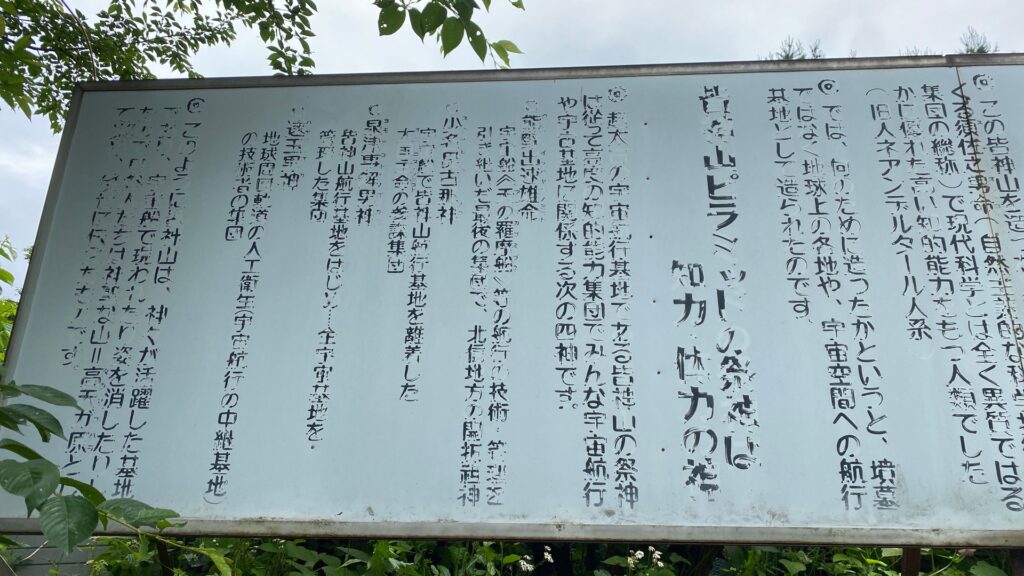 ◎この皆神山を造っ
くる須佐之男命(自然主義的な科学技
集団の総称)で現代科学とは全く異質ではる
かに優れた高い知的能力をもつ人類でした
(旧人ネアンデルタール人系
◎では、何のために造ったかというと、墳墓
ではなく地球上の各地や、宇宙空間への航行
基地として造られたのです。
皆神山ピラミッドの祭神は
知力、体力の神
◎超太古の宇宙航行基地である皆神山の祭神
は従って高度の知的能力集団でみんな宇宙航行
や宇宙基地に関係する次の四神です。
熊野出速雄命
宇宙船の羅摩船の航行の技術、管理を
引き継いだ最後の集団で、北信地方の開拓祖神
少名毘古那神
宇宙船で皆神山航行基地を離着した
大国主命の参謀集団
泉津事解男神
皆神山航行基地をはじめ…全宇宙基地を
管理した集団
速玉男神
地球周回軌道の人工衛星(宇宙航行の中継基地)
の技術者の集団
◎このように皆神山は、神々が活躍した基地
であり、宇宙船で現われたり姿を消したり
山=高天が原と
です。